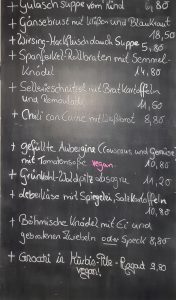 + Gulasch suppe vom Rind 6,80
+ Gänsebrust mit Klößen und Blaukraut
18,50
+ Wirsing-Hackfleisch Suppe
5,80
+ Spanferkel-Rollbraten mit Semmel-
Knödel 14,80
+ Sellerieschnitzel mit Bratkartoffeln
und Remoulade 11,50
+ Chili con Carne mit Weißbrot 8,80
+ gefüllte Aubergine Couscous und Gemüse
mit Tomatensoße vegan 10,80
+ Grünkohl-Waldpilz 11,20
+ Leberkäse mit Spiegelei, Salzkartoffeln
10,80
+ Böhmische Knödel mit Ei und
gebratenen Zwiebeln oder Speck 8,80
+ Gnocchi in Kürbis-Pilz-Ragout 9,80
vegan!